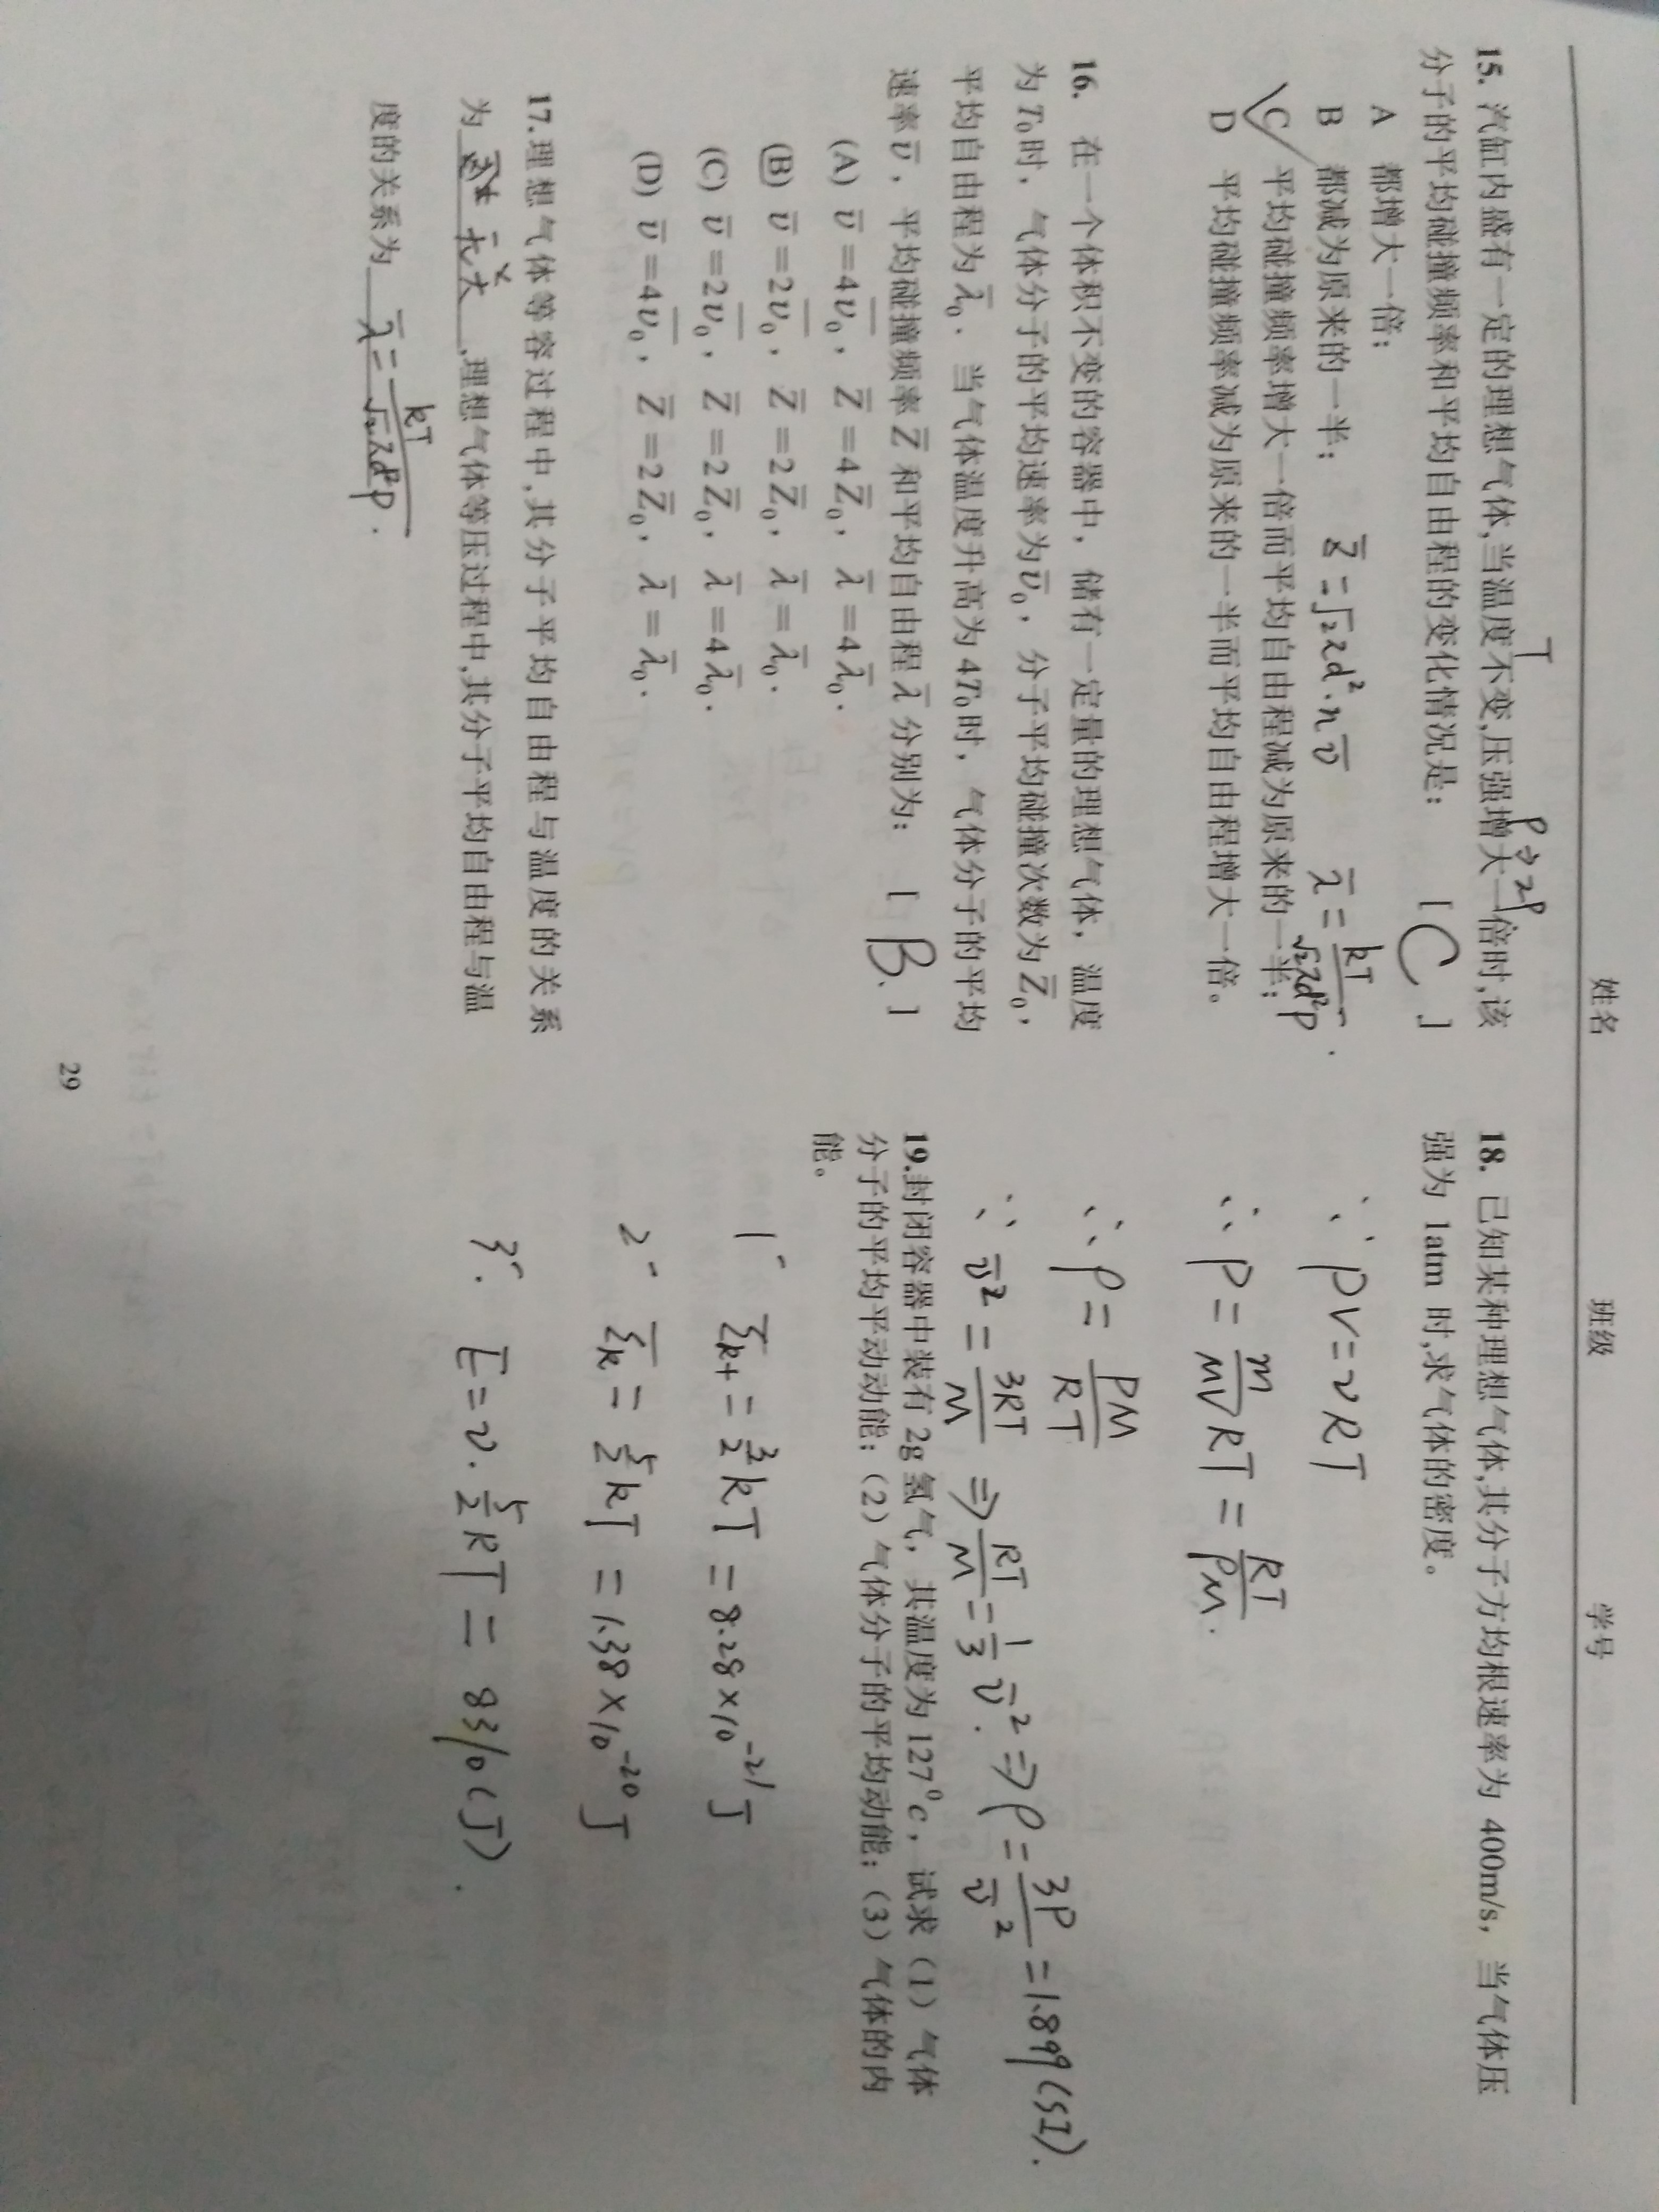 姓名 班级 学号
T P→2P
15. 汽缸内盛有一定的理想气体,当温度不变,压强增大一倍时,该
分子的平均碰撞频率和平均自由程的变化情况是: [ C ]
A 都增大一倍;
B 都减为原来的一半; z̄=√2πd²·nv̄ λ̄=kT/√2πd²P.
C 平均碰撞频率增大一倍而平均自由程减为原来的一半;
D 平均碰撞频率减为原来的一半而平均自由程增大一倍。
16. 在一个体积不变的容器中，储有一定量的理想气体，温度
为T₀时，气体分子的平均速率为v̄₀，分子平均碰撞次数为Z̄₀，
平均自由程为λ̄₀．当气体温度升高为4T₀时，气体分子的平均
速率v̄，平均碰撞频率Z̄和平均自由程λ̄分别为: [ B、]
(A) v̄=4v̄₀，Z̄=4Z̄₀，λ̄=4λ̄₀.
(B) v̄=2v̄₀，Z̄=2Z̄₀，λ̄=λ̄₀.
(C) v̄=2v̄₀，Z̄=2Z̄₀，λ̄=4λ̄₀.
(D) v̄=4v̄₀，Z̄=2Z̄₀，λ̄=λ̄₀.
17.理想气体等容过程中,其分子平均自由程与温度的关系
为 无关 ,理想气体等压过程中,其分子平均自由程与温
度的关系为 λ̄=kT/√2πd²P.
18. 已知某种理想气体,其分子方均根速率为 400m/s，当气体压
强为 1atm 时,求气体的密度。
∵ PV=νRT
∴ P=m/MV RT=RT/PM.
∴ ρ=PM/RT
∵ v̄²=3RT/M ⇒ RT/M=1/3 v̄². ⇒ ρ=3P/v̄²=1.899(SI).
19.封闭容器中装有 2g 氢气，其温度为 127⁰c，试求（1）气体
分子的平均平动动能;（2）气体分子的平均动能;（3）气体的内
能。
1° ε̄kt=3/2kT=8.28×10⁻²¹J
2° ε̄k=5/2kT=1.38×10⁻²⁰J
3°. E̅=ν·5/2RT=8310(J).
29